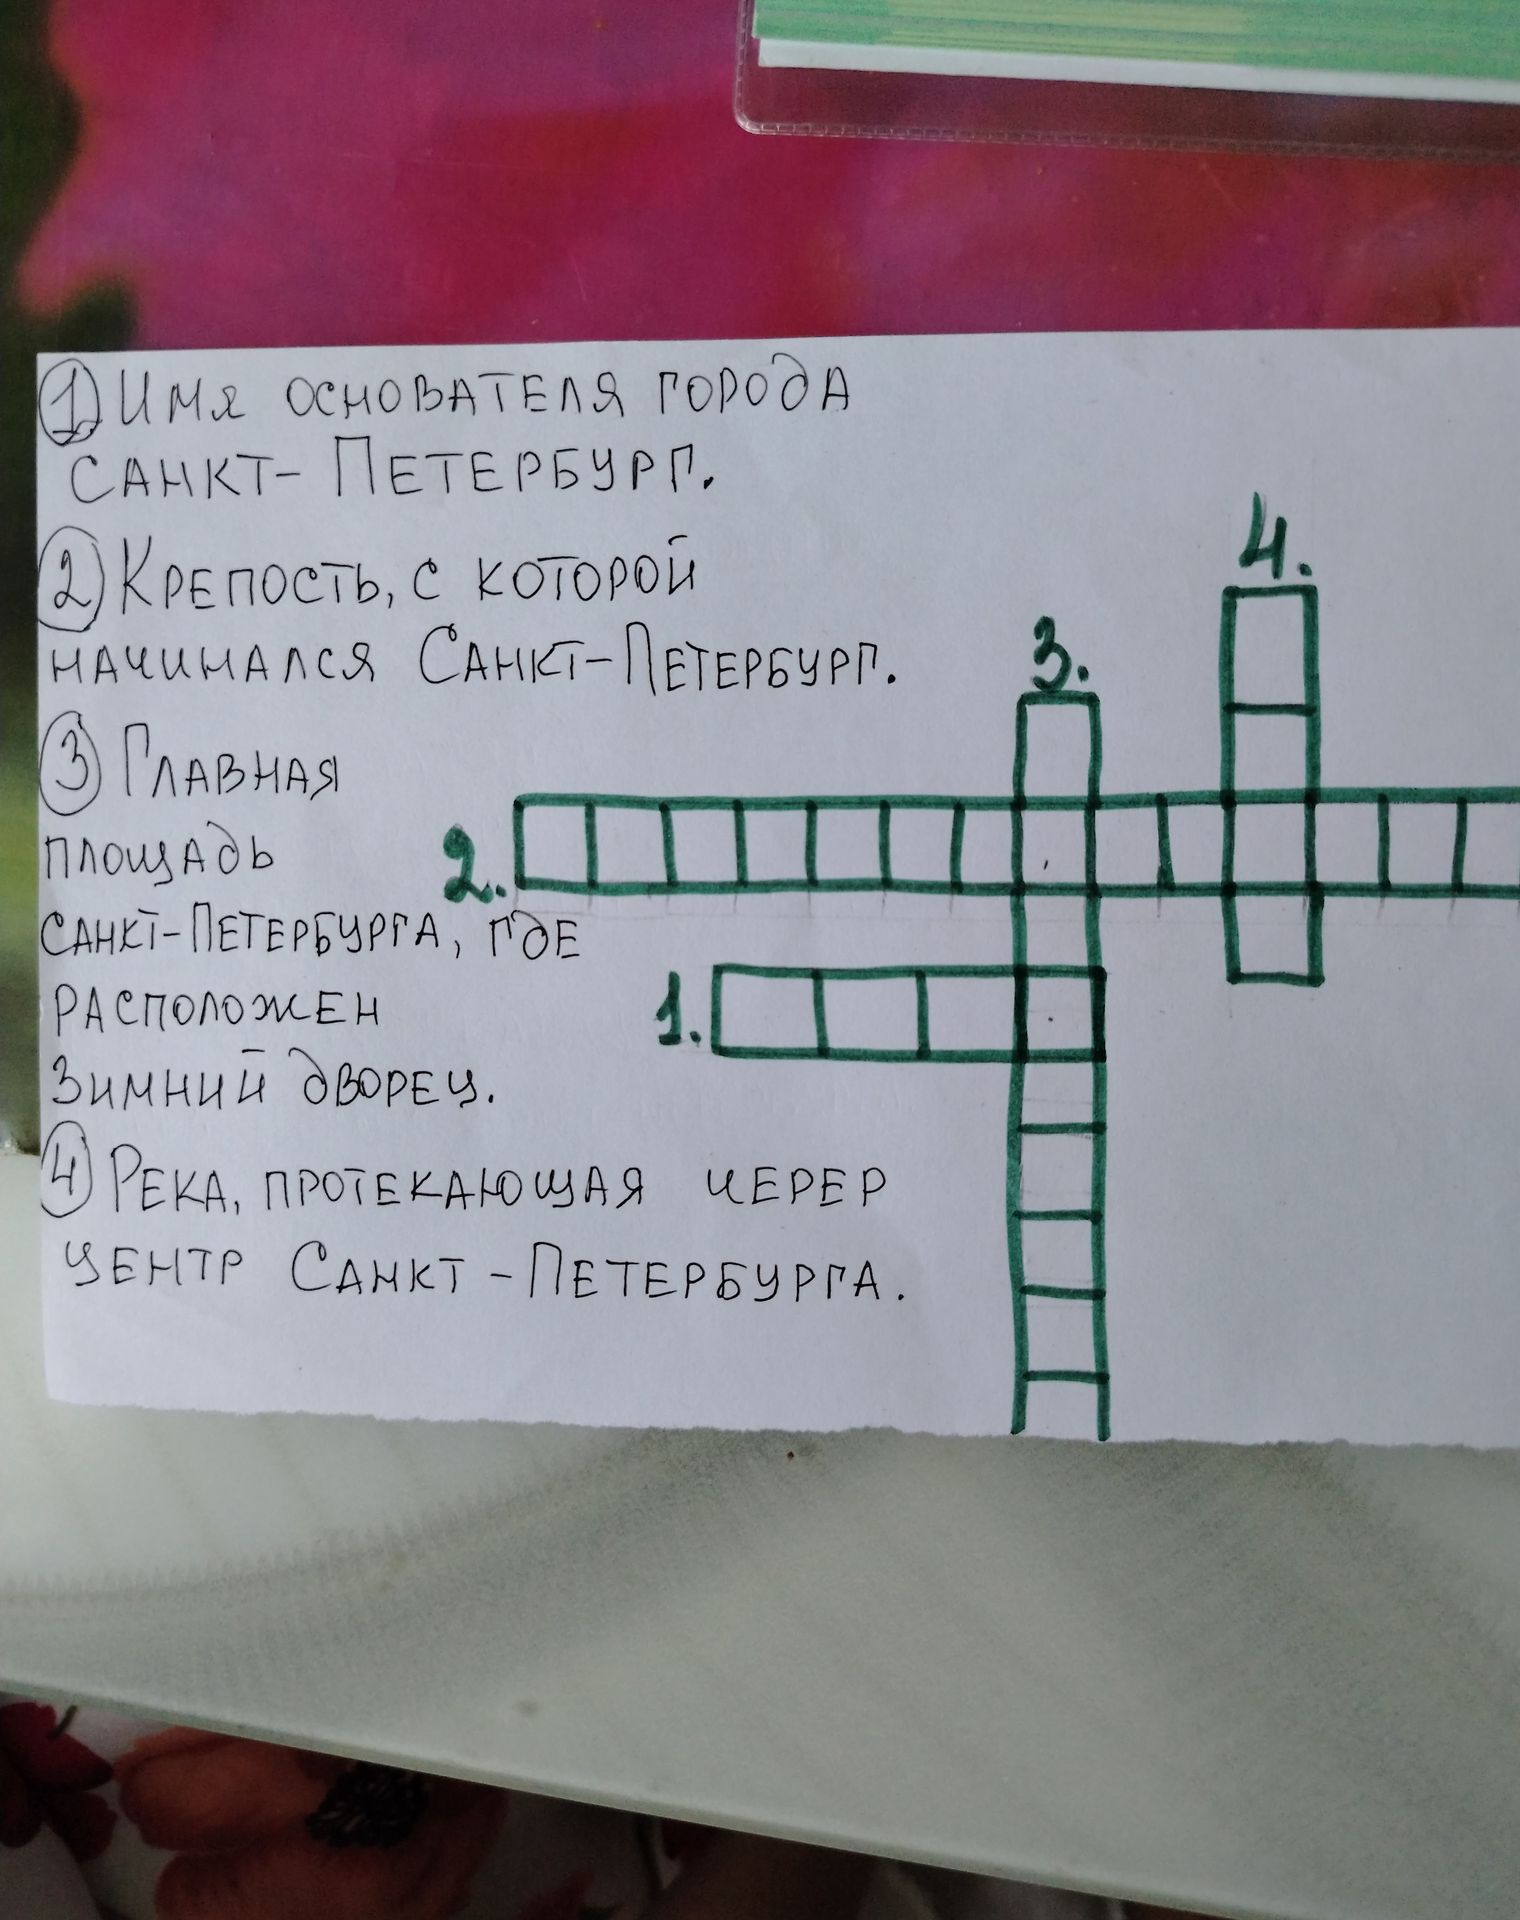 1. Имя основателя города
Санкт-Петербург.
2 Крепость, с которой
начинался Санкт-Петербург.
3 Главная
площадь
Санкт-Петербурга, где
расположен
Зимний дворец.
4 Река, протекающая черер
центр Санкт-Петербурга.
4.
3.
2.
1.